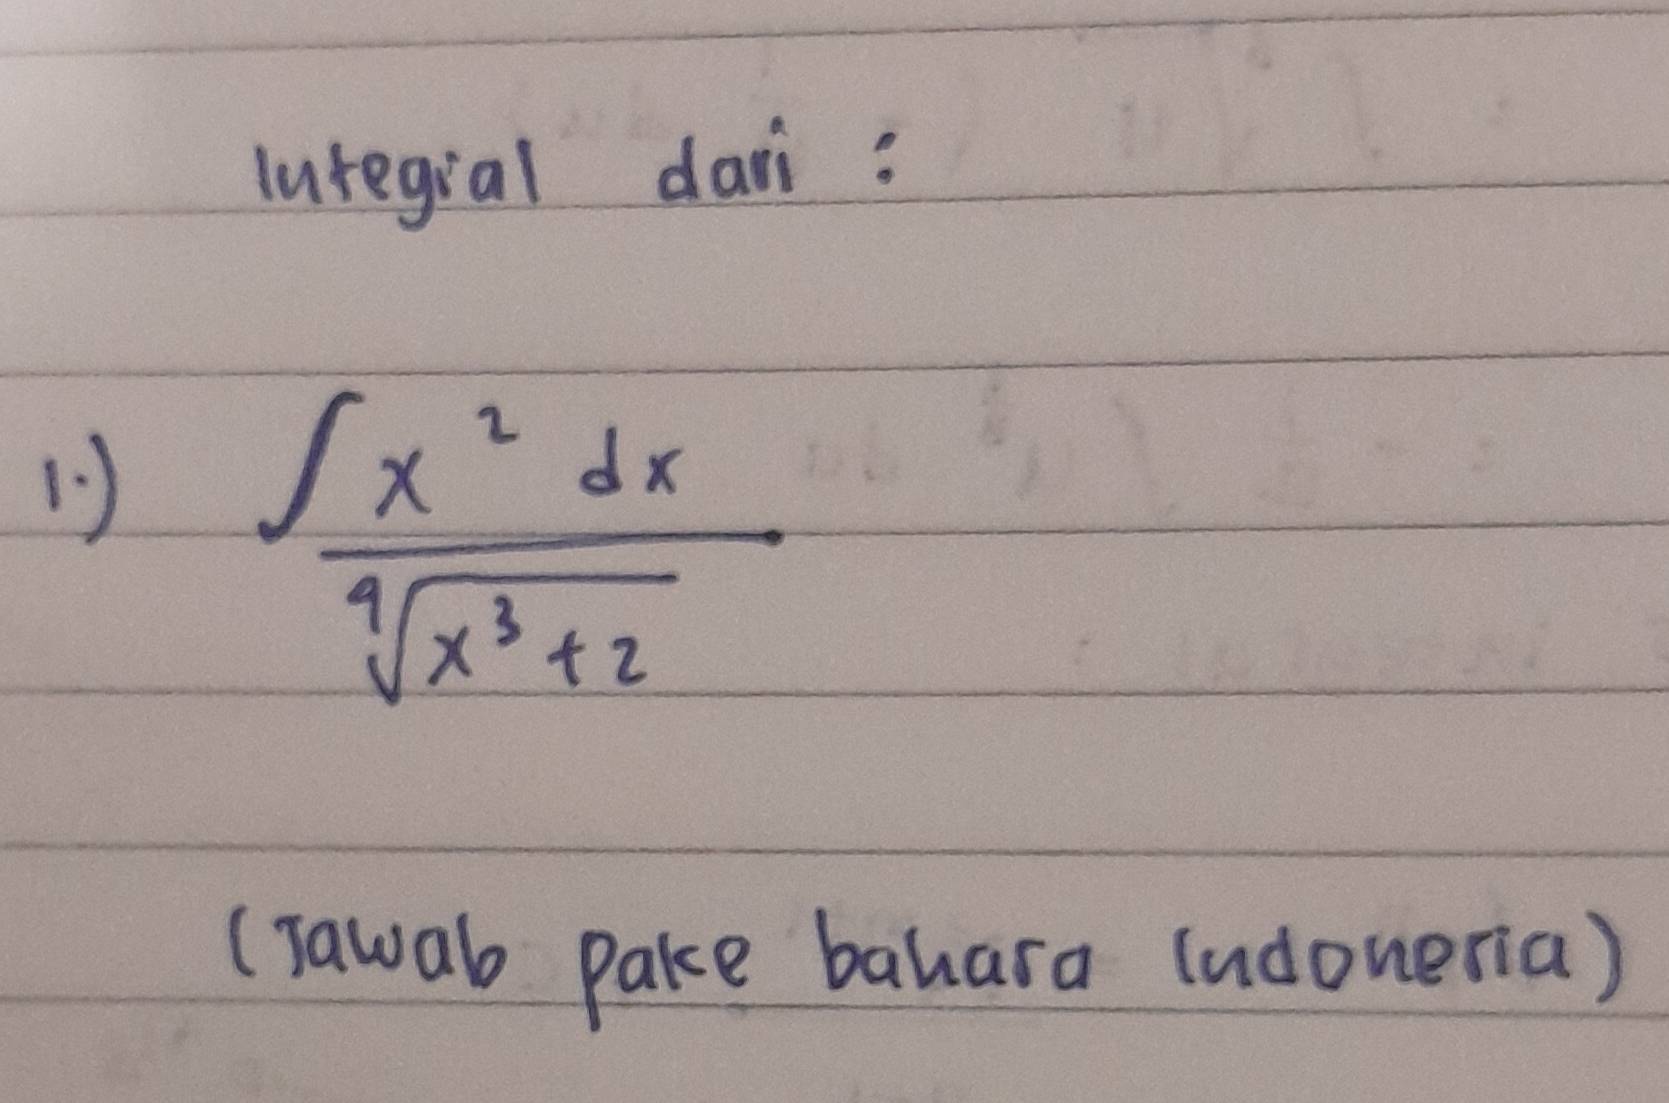 Integral dari :
1.) ∫ x² dx
∜(x³+2)
(Jawab pake bahasa Indonesia)